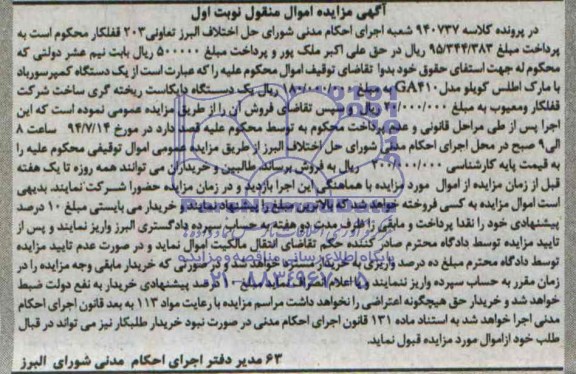 آگهی مزایده اموال منقول نوبت اول
در پرونده کلاسه ۹۴۰۷۳۷ شعبه اجرای احکام مدنی شورای حل اختلاف البرز تعاونی۲۰۳ قفلکار محکوم است به
پرداخت مبلغ ۹۵/۳۴۴/۳۸۳ ریال در حق علی اکبر ملک پور و پرداخت مبلغ ۵۰۰۰۰۰ ریال بابت نیم عشر دولتی که
محکوم له جهت استفای حقوق خود بدوا تقاضای توقیف اموال محکوم علیه را که عبارت است از یک دستگاه کمپرسورباد
با مارک اطلس کوپلو مدل GA۴۱۰ به مبلغ ۱۸۰/۰۰۰/۰۰۰ ریال یک دستگاه دایکاست ریخته گری ساخت شرکت
قفلکار ومعیوب به مبلغ ۲۰/۰۰۰/۰۰۰ ریال و سپس تقاضای فروش آن را از طریق مزایده عمومی نموده است که این
اجرا پس از طی مراحل قانونی و عدم پرداخت محکوم به توسط محکوم علیه قصد دارد در مورخ ۹۴/۷/۱۴ ساعت ۸
الی۹ صبح در محل اجرای احکام مدنی شورای حل اختلاف البرز از طریق مزایده عمومی اموال توقیفی محکوم علیه را
به قیمت پایه کارشناسی ۲۰۰/۰۰۰/۰۰۰ ریال به فروش برساند. طالبین و خریداران می توانند همه روزه تا یک هفته
قبل از زمان مزایده از اموال مورد مزایده با هماهنگی این اجرا بازدید و در زمان مزایده حضورا شرکت نمایند. بدیهی
است اموال مزایده به کسی فروخته خواهد شد که بالاترین مبلغ را پیشنهاد نمایند و خریدار می بایستی مبلغ ۱۰ درصد
پیشنهادی خود را نقدا پرداخت و مابقی را ظرف مدت دو هفته به حساب سپرده دادگستری البرز واریز نمایند و پس از
تایید مزایده توسط دادگاه محترم صادر کننده حکم تقاضای انتقال مالکیت اموال نماید و در صورت عدم تایید مزایده
توسط دادگاه محترم مبلغ ده درصد واریزی به خریدار مسترد خواهد شد و در صورتی که خریدار مابقی وجه مزایده را در
زمان مقرر به حساب سپرده واریز ننمایند و یا اعلام انصراف نماید مبلغ ۱۰ درصد پیشنهادی خریدار به نفع دولت ضبط
خواهد شد و خریدار حق هیچگونه اعتراضی را نخواهد داشت مراسم مزایده با رعایت مواد ۱۱۳ به بعد قانون اجرای احکام
مدنی اجرا خواهد شد به استناد ماده ۱۳۱ قانون اجرای احکام مدنی در صورت نبود خریدار طلبکار نیز می تواند در قبال
طلب خود ازاموال مورد مزایده قبول نماید.
۶۳ مدیر دفتر اجرای احکام مدنی شورای البرز
پایگاه اطلاع رسانی مناقصه و مزایده
۰۲۱-۸۸۳۴۹۶۷۰-۵